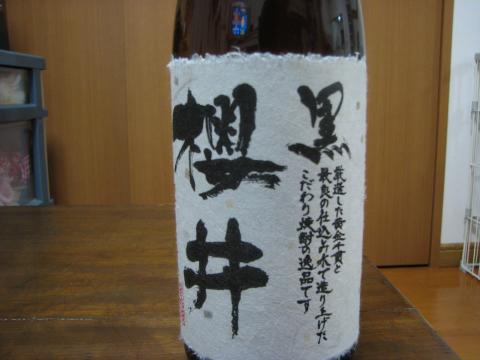 黒
櫻井
厳選した黄金千貫と
最良の仕込み水で造り上げた
こだわり焼酎の逸品です